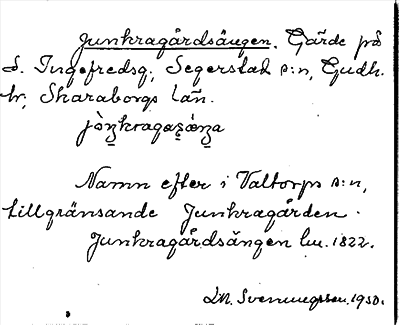 Junkragårdsängen. Gärde på
S. Ingefredsg., Segerstad s:n, Gudh.
hr; Skaraborgs län.
Namn efter i Valtorps s:n,
tillgränsande Junkragården.
Junkragårdsängen lm. 1822.
Svenungsson. 1930.